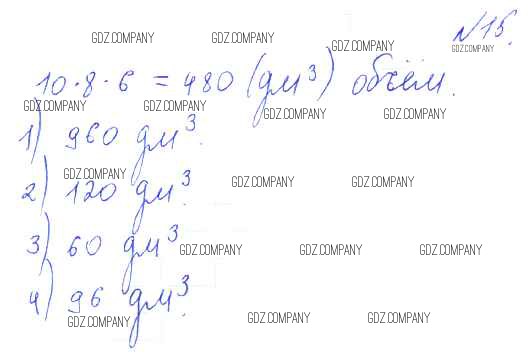 №15.
10·8·6 = 480 (дм³) объём.
1) 960 дм³.
2) 120 дм³.
3) 60 дм³
4) 96 дм³.
GDZ.COMPANY GDZ.COMPANY
GDZ.COMPANY GDZ.COMPANY
GDZ.COMPANY GDZ.COMPANY GDZ.COMPANY GDZ.COMPANY
GDZ.COMPANY GDZ.COMPANY GDZ.COMPANY
GDZ.COMPANY GDZ.COMPANY GDZ.COMPANY
GDZ.COMPANY GDZ.COMPANY GDZ.COMPANY